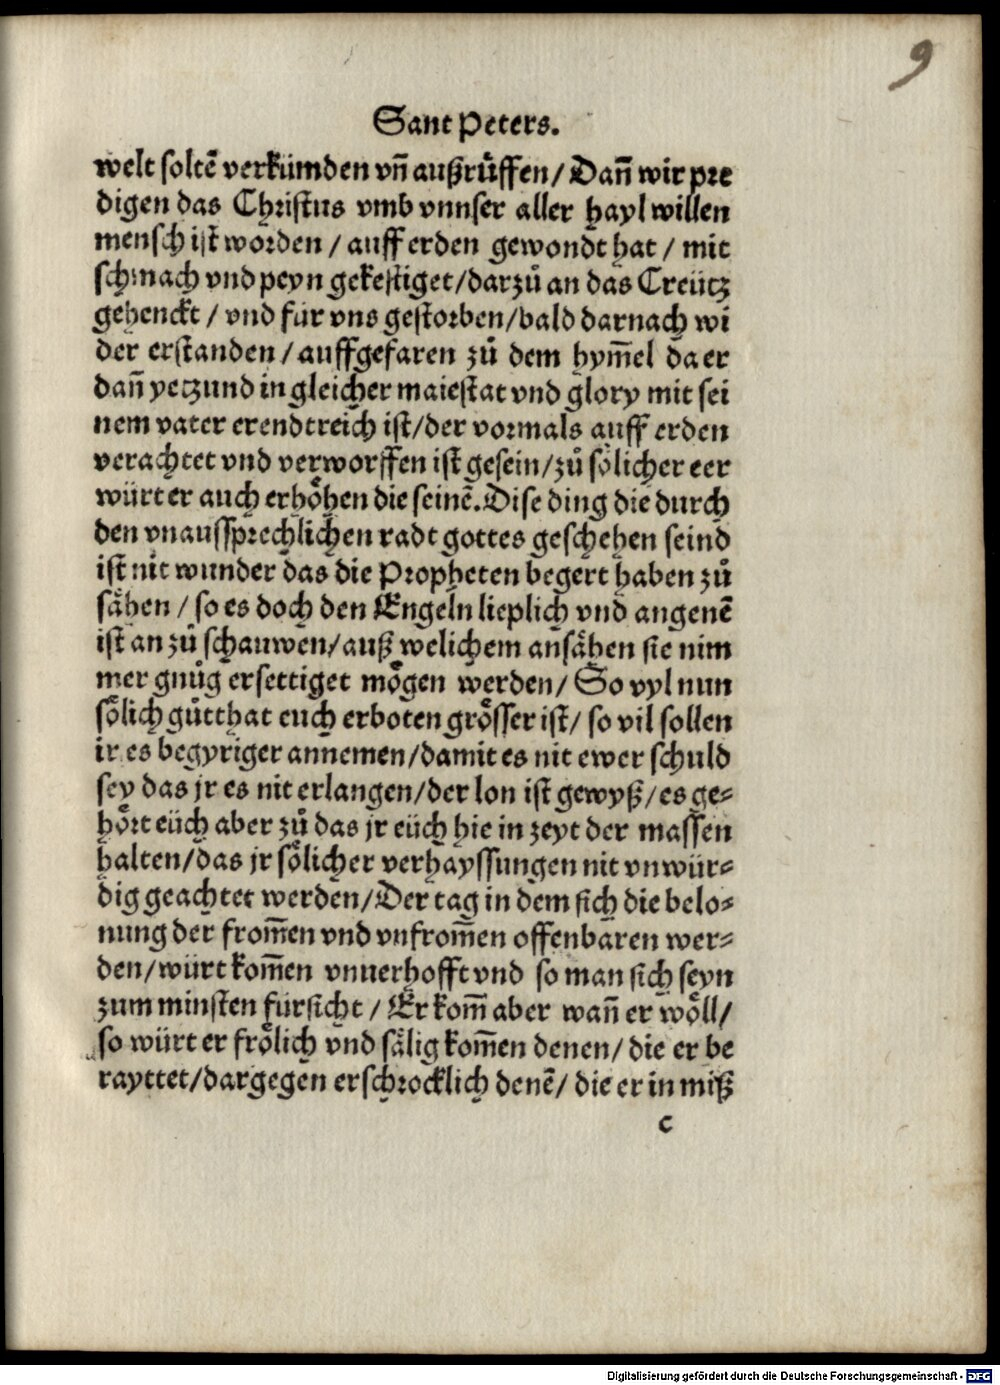 9
Sant Peters.
welt soltẽ verkümden vñ außrůffen / Dañ wir pre
digen das Christus vmb vnnser aller hayl willen
mensch ist worden / auff erden gewondt hat / mit
schmach vnd peyn gekestiget / darzů an das Creütz
gehenckt / vnd für vns gestorben / bald darnach wi
der erstanden / auffgefaren zů dem hym̃el da er
dañ yetzund in gleicher maiestat vnd glory mit sei
nem vater erendtreich ist / der vormals auff erden
verachtet vnd verworffen ist gesein / zů sölicher eer
würt er auch erhöhen die seinẽ. Dise ding die durch
den vnaussprechlichen radt gottes geschehen seind
ist nit wunder das die Propheten begert haben zů
sähen / so es doch den Engeln lieplich vnd angenẽ
ist an zů schauwen / auß welichem ansähen sie nim
mer gnůg ersettiget mögen werden / So vyl nun
sölich gůtthat euch erboten grösser ist / so vil sollen
ir es begyriger annemen / damit es nit ewer schuld
sey das jr es nit erlangen / der lon ist gewyß / es ge⸗
hört eüch aber zů das jr eüch hie in zeyt der massen
halten / das jr sölicher verhayssungen nit vnwür⸗
dig geachtet werden / Der tag in dem sich die belo⸗
nung der from̃en vnd vnfrom̃en offenbaren wer⸗
den / würt kom̃en vnuerhofft vnd so man sich seyn
zum minsten fürsicht / Er kom̃ aber wañ er wöll /
so würt er frölich vnd sälig kom̃en denen / die er be
rayttet / dargegen erschrocklich denẽ / die er in miß
c
Digitalisierung gefördert durch die Deutsche Forschungsgemeinschaft - DFG